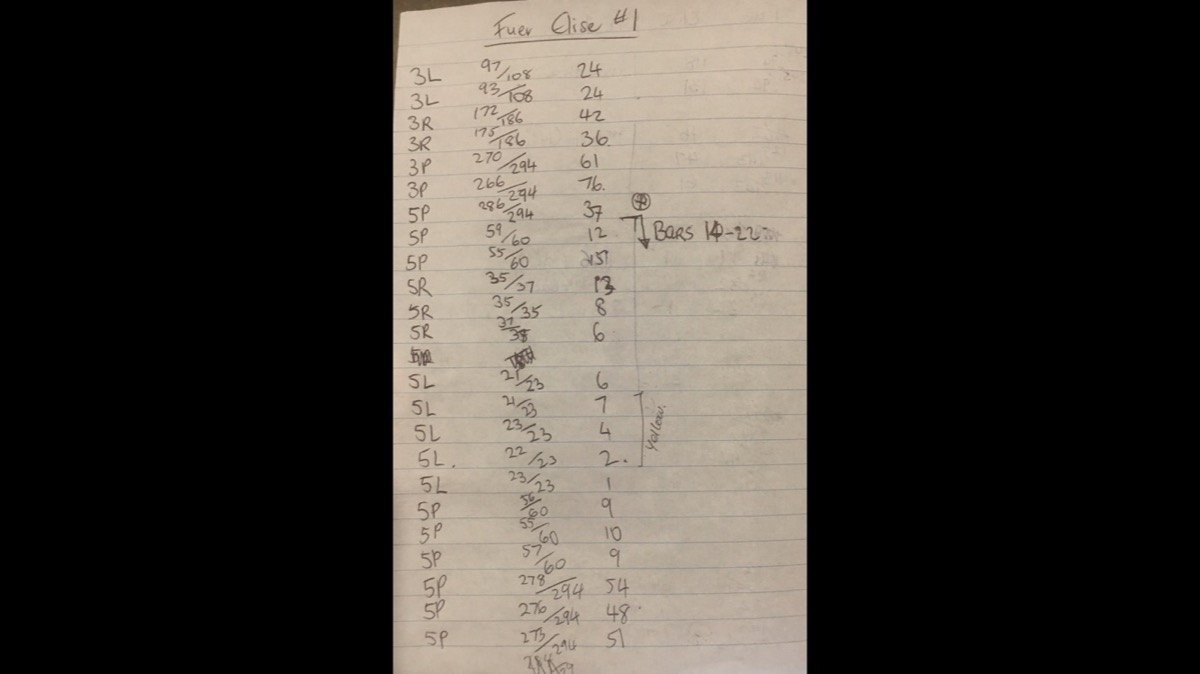 Fuer Elise #1
3L 97/108 24
3L 93/108 24
3R 172/186 42
3R 175/186 36
3P 270/294 61
3P 266/294 76.
5P 286/294 37
5P 59/60 12 Bars 14-22
5P 55/60 15
5R 35/37 13
5R 35/35 8
5R 37/38 6
5L 21/23 6
5L 21/23 7
5L 23/23 4 Yellow.
5L. 22/23 2.
5L 23/23 1
5P 56/60 9
5P 55/60 10
5P 57/60 9
5P 278/294 54
5P 276/294 48
5P 275/294 51